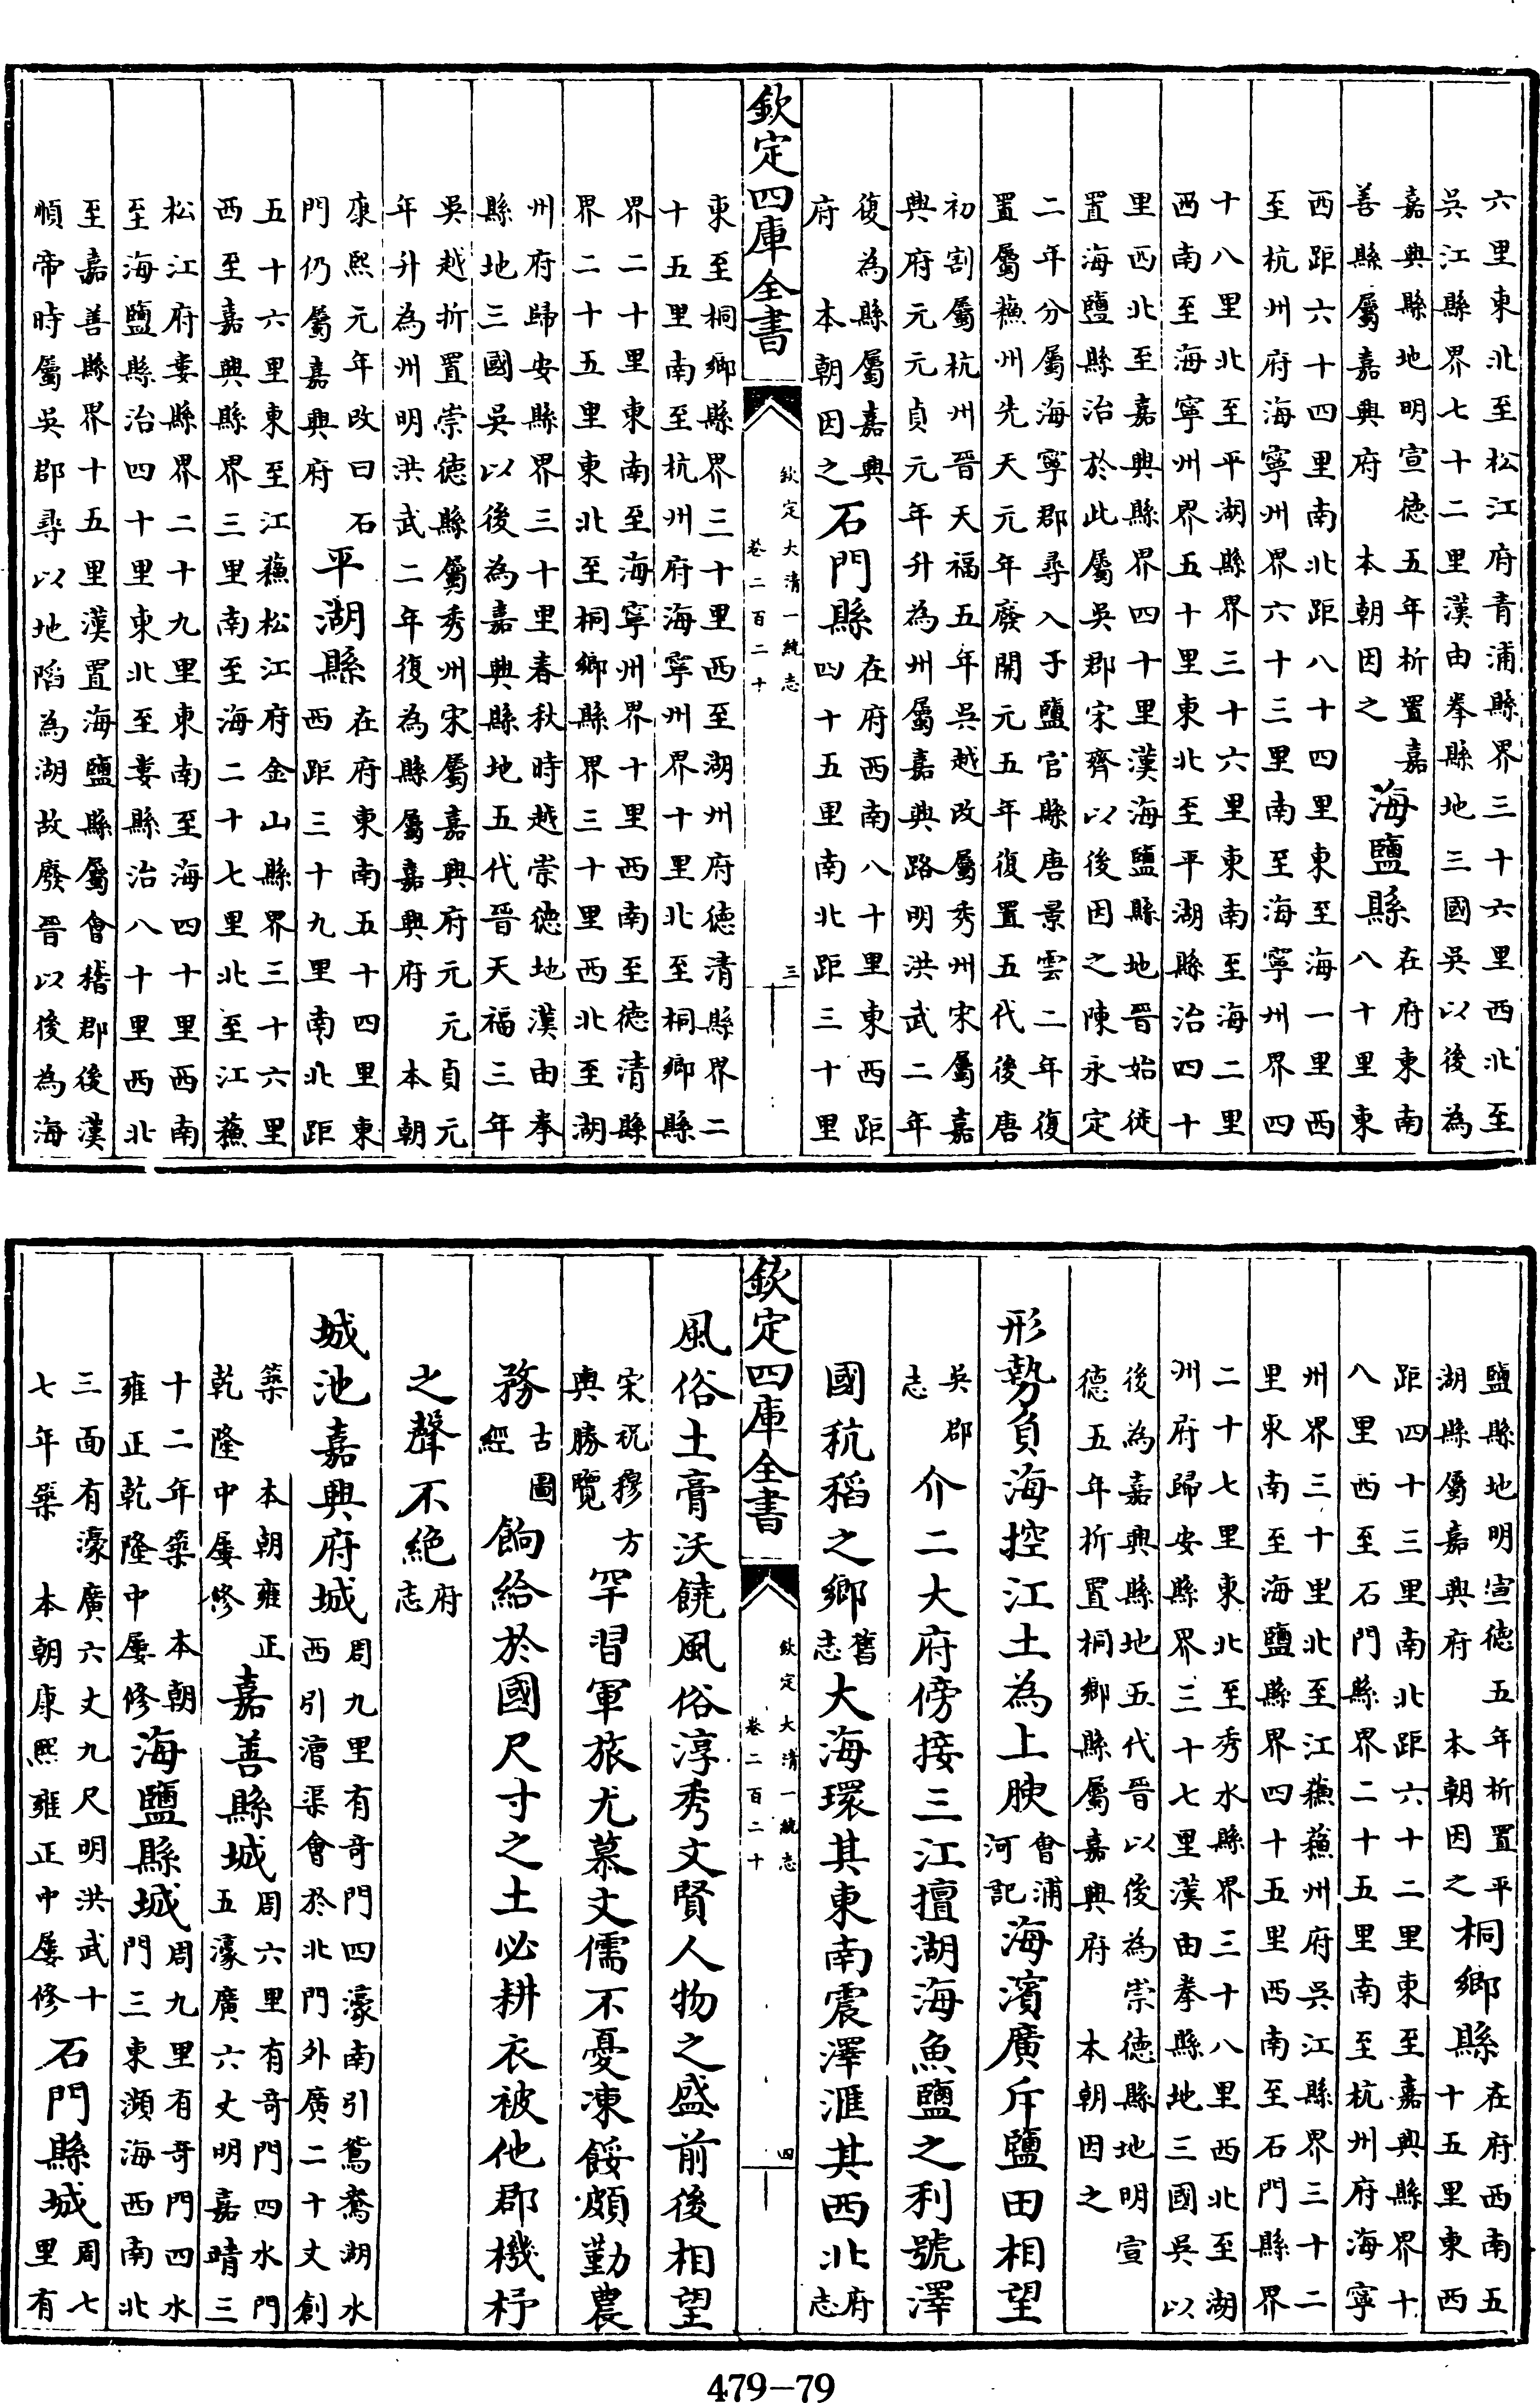 六里東北至松江府青浦縣界三十六里西北至
吳江縣界七十二里漢由拳縣地三國吳以後為
嘉興縣地明宣德五年析置嘉
善縣屬嘉興府　本朝因之
海鹽縣
在府東南
八十里東
西距六十四里南北距八十四里東至海一里西
至杭州府海寧州界六十三里南至海寧州界四
十八里北至平湖縣界三十六里東南至海二里
西南至海寧州界五十里東北至平湖縣治四十
里西北至嘉興縣界四十里漢海鹽縣地晉始徙
置海鹽縣治於此屬吳郡宋齊以後因之陳永定
二年分屬海寧郡尋入于鹽官縣唐景雲二年復
置屬蘇州先天元年廢開元五年復置五代後唐
初割屬杭州晉天福五年吳越改屬秀州宋屬嘉
興府元元貞元年升為州屬嘉興路明洪武二年
復為縣屬嘉興
府　本朝因之
石門縣
在府西南八十里東西距
四十五里南北距三十里
欽定四庫全書
欽定大清一統志
卷二百二十
三
東至桐鄉縣界三十里西至湖州府德清縣界二
十五里南至杭州府海寧州界十里北至桐鄉縣
界二十里東南至海寧州界十里西南至德清縣
界二十五里東北至桐鄉縣界三十里西北至湖
州府歸安縣界三十里春秋時越崇德地漢由拳
縣地三國吳以後為嘉興縣地五代晉天福三年
吳越折置崇德縣屬秀州宋屬嘉興府元元貞元
年升為州明洪武二年復為縣屬嘉興府　本朝
康熙元年改曰石
門仍屬嘉興府
平湖縣
在府東南五十四里東
西距三十九里南北距
五十六里東至江蘇松江府金山縣界三十六里
西至嘉興縣界三里南至海二十七里北至江蘇
松江府婁縣界二十九里東南至海四十里西南
至海鹽縣治四十里東北至婁縣治八十里西北
至嘉善縣界十五里漢置海鹽縣屬會稽郡後漢
順帝時屬吳郡尋以地陷為湖故廢晉以後為海
鹽縣地明宣德五年析置平
湖縣屬嘉興府　本朝因之
桐鄉縣
在府西南五
十五里東西
距四十三里南北距六十二里東至嘉興縣界十
八里西至石門縣界二十五里南至杭州府海寧
州界三十里北至江蘇蘇州府吳江縣界三十二
里東南至海鹽縣界四十五里西南至石門縣界
二十七里東北至秀水縣界三十八里西北至湖
州府歸安縣界三十七里漢由拳縣地三國吳以
後為嘉興縣地五代晉以後為崇德縣地明宣
德五年析置桐鄉縣屬嘉興府　本朝因之
形勢負海控江土為上腴
會浦
河記
海濱廣斥鹽田相望
吳郡
志
介二大府傍接三江擅湖海魚鹽之利號澤
國秔稻之鄉
舊
志
大海環其東南震澤滙其西北
府
志
欽定四庫全書
欽定大清一統志
卷二百二十
四
風俗土膏沃饒風俗淳秀文賢人物之盛前後相望
宋祝穆方
輿勝覽
罕習軍旅尤慕文儒不憂凍餒頗勤農
務
古圖
經
餉給於國尺寸之土必耕衣被他郡機杼
之聲不絕
府
志
城池嘉興府城
周九里有奇門四濠南引鴛鴦湖水
西引漕渠會於北門外廣二十丈創
築　本朝雍正
乾隆中屢修
嘉善縣城
周六里有奇門四水門
五濠廣六丈明嘉靖三
十二年築　本朝
雍正乾隆中屢修
海鹽縣城
周九里有奇門四水
門三東瀕海西南北
三面有濠廣六丈九尺明洪武十
七年築　本朝康熙雍正中屢修
石門縣城
周七
里有
479—79